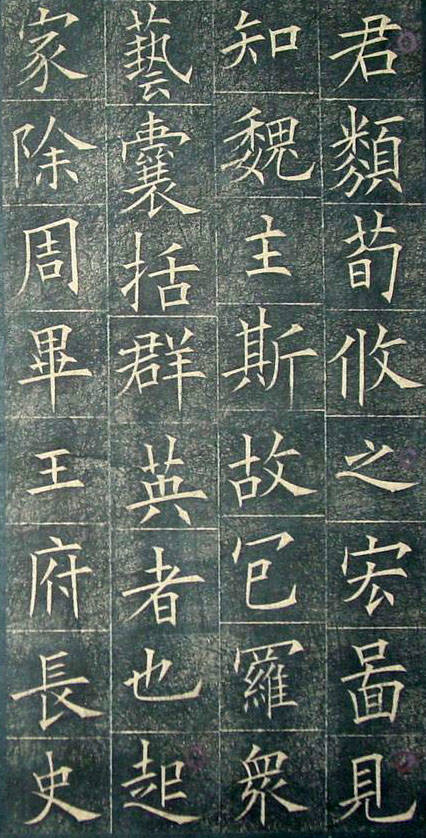 君類荀攸之宏啚見
知魏主斯故冠羅衆
藝囊括群英者也起
家除周畢王府長史